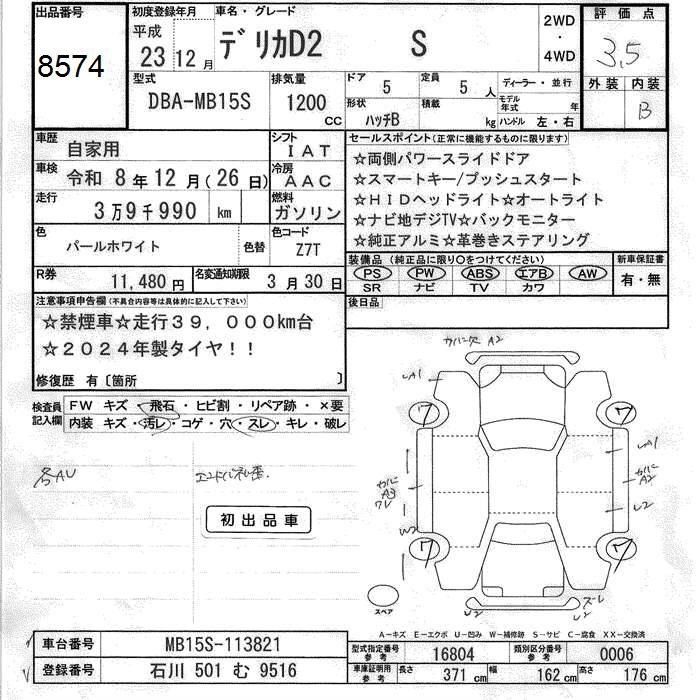 出品番号
8574
初度登録年月
平成
23 12月
車名・グレード
デリカD2 S
2WD
・
4WD
評価点
3.5
外装 内装
B
型式
DBA-MB15S
排気量
1200
cc
ドア
5
定員
5 人
形状
ハッチB
積載
kg
ディーラー・並行
モデル年式 年
ハンドル 左・右
車歴
自家用
シフト
IAT
車検
令和 8年12月(26日)
冷房
AAC
走行
3万9千990 km
燃料
ガソリン
色
パールホワイト
色替
色コード
Z7T
R券
11,480円
名変通知期限
3月30日
セールスポイント(正常に機能するものに限ります)
☆両側パワースライドドア
☆スマートキー/プッシュスタート
☆HIDヘッドライト☆オートライト
☆ナビ地デジTV☆バックモニター
☆純正アルミ☆革巻きステアリング
装備品 (純正品に限り○をつけてください)
PS PW ABS エアB AW
SR ナビ TV カワ
新車保証書
有・無
後日品
注意事項申告欄(不具合内容等は具体的に記入して下さい)
☆禁煙車☆走行39,000km台
☆2024年製タイヤ!!
修復歴 有〔箇所 〕
検査員
記入欄
FW キズ・飛石・ヒビ割・リペア跡・×要
内装 キズ・汚レ・コゲ・穴・スレ・キレ・破レ
各AU
初出品車
A2
A1
ワ
ワ
A1
A2
U2
W2
ワ
ワ
スペア
U2
U2
A-キズ E-エクボ U-凹み W-補修跡 S-サビ C-腐食 XX-交換済
車台番号
MB15S-113821
登録番号
石川 501 む 9516
型式指定番号
参考
16804
類別区分番号
参考
0006
車庫証明用
参考
長さ 371 cm
幅 162 cm
高さ 176 cm